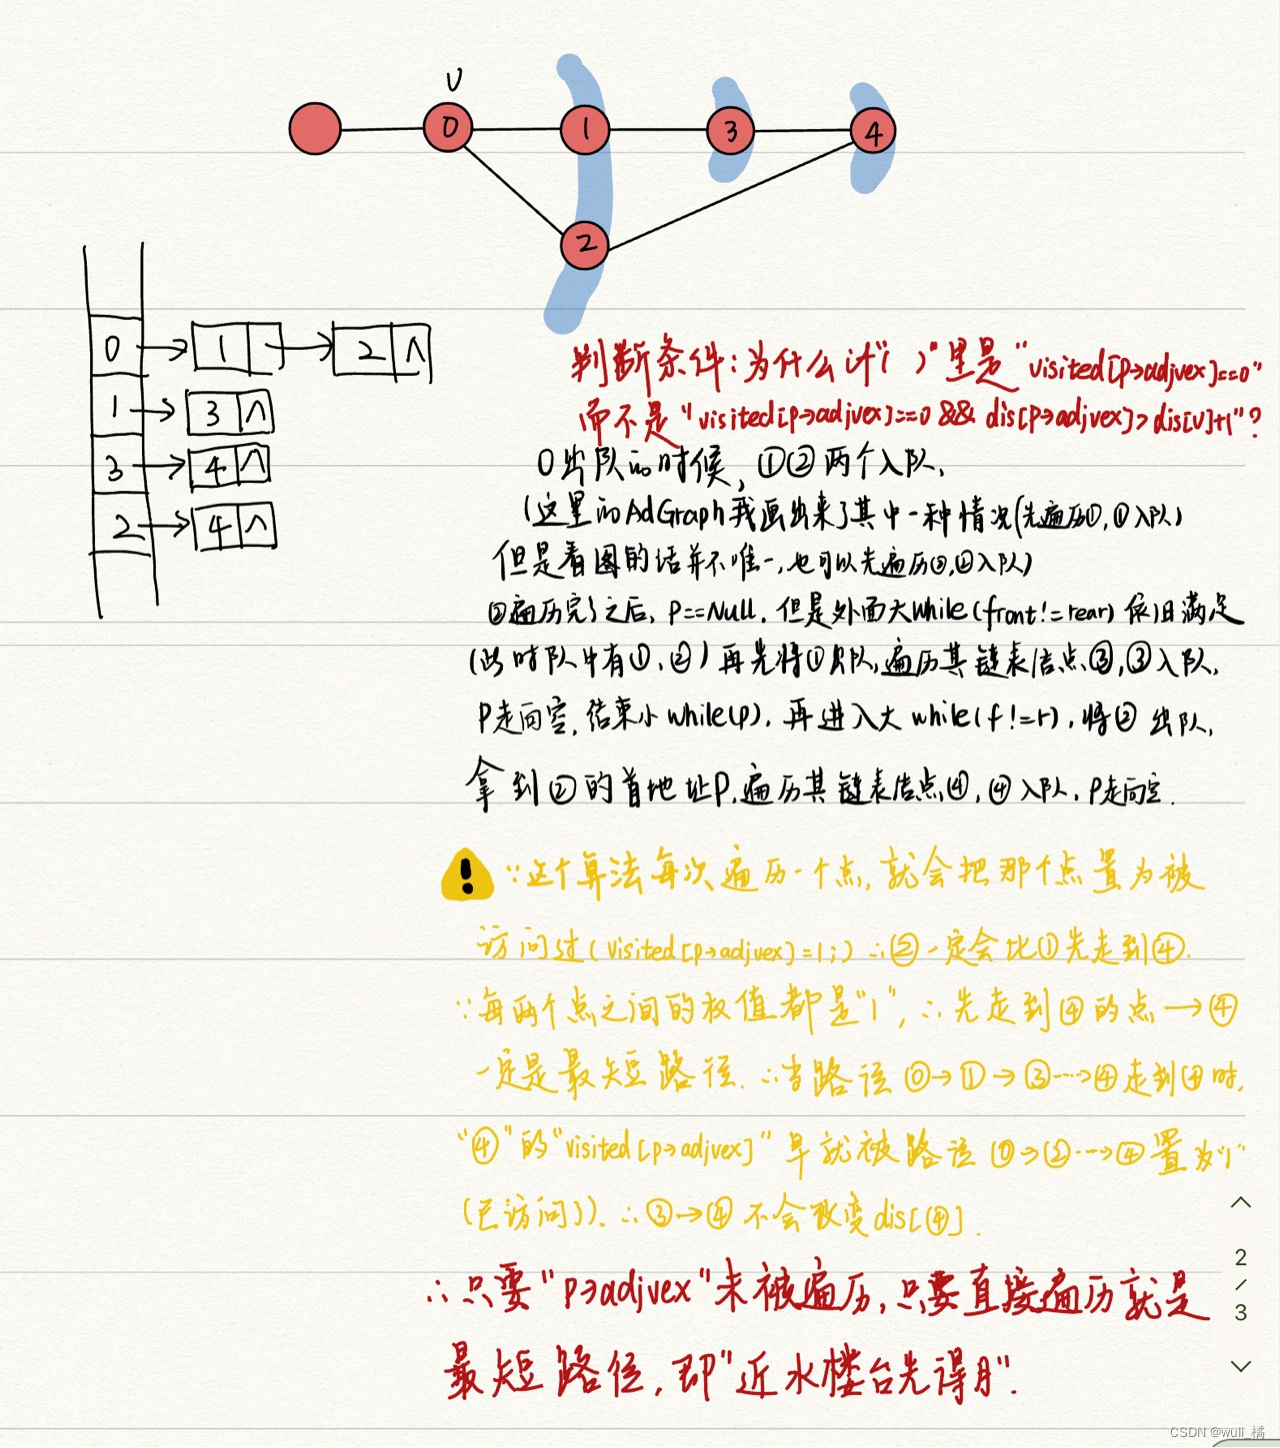 V
0 1 3 4
2
0 1 2 ∧
1 3 ∧
3 4 ∧
2 4 ∧
判断条件:为什么if"( )"里是"visited[p→adjvex]==0"
而不是"visited[p→adjvex]==0 && dis[p→adjvex]>dis[v]+1"?
0出队的时候,①②两个入队.
(这里的AdGraph我画出来了其中一种情况(先遍历①,①入队)
但是看图的话并不唯一,也可以先遍历②,②入队)
②遍历完了之后,p==Null,但是外面大while(front!=rear)依旧满足
(此时队中有①、②)再先将①出队,遍历其链表结点③,③入队.
P走向空,结束小while(p).再进入大while(f!=r),将②出队,
拿到②的首地址P,遍历其链表结点④,④入队.P走向空.
∵这个算法每次遍历一个点,就会把那个点置为被
访问过(visited[p→adjvex]=1;)∴②一定会比①先走到④.
∵每两个点之间的权值都是"1",∴先走到④的点→④
一定是最短路径.∴当路径⓪→①→③…→④走到④时,
"④"的"visited[p→adjvex]"早就被路径⓪→②…→④置为"1"
(已访问了).∴③→④不会改变dis[④].
∴只要"p→adjvex"未被遍历,只要直接遍历就是
最短路径,即"近水楼台先得月".
2
/
3
CSDN @wuli_橘